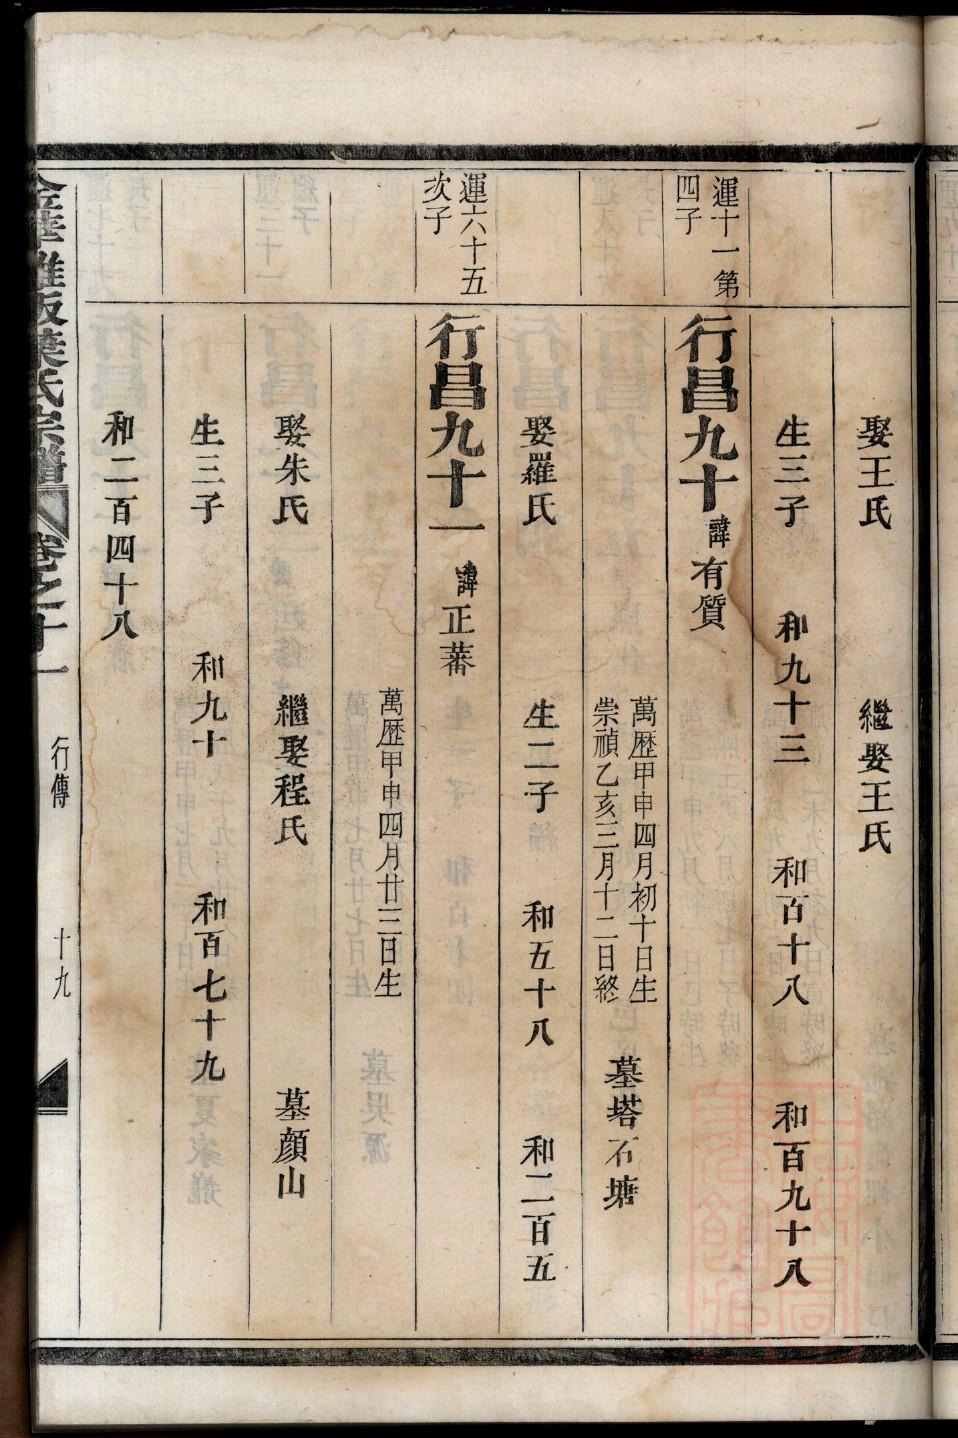 娶王氏 繼娶王氏
生三子 和九十三 和百十八 和百九十八
運十一第
四子
行昌九十 諱有質
萬歷甲申四月初十日生
崇禎乙亥三月十二日終
墓塔石塘
娶羅氏 生二子 和五十八 和二百五
運六十五
次子
行昌九十一 諱正蕃
萬歷甲申四月廿三日生
娶朱氏 繼娶程氏 墓顏山
生三子 和九十 和百七十九
和二百四十八
葉氏宗譜 卷之十一 行傳 十九